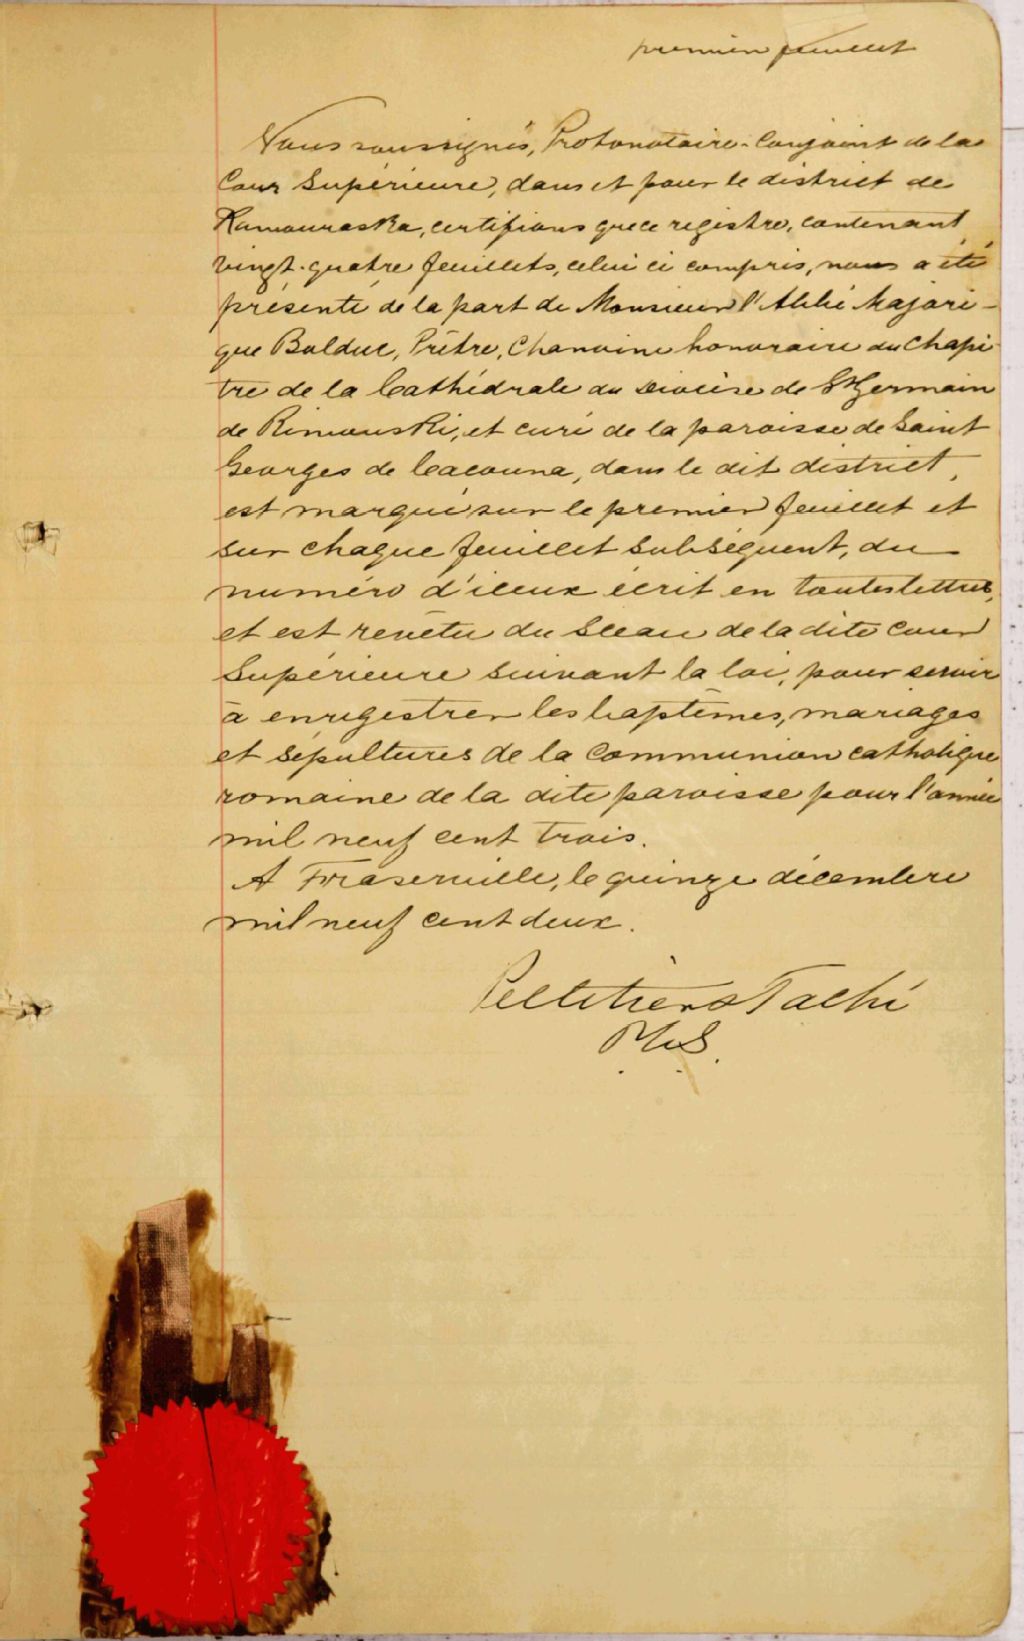 premier feuillet
Nous soussignés, Protonotaire-Conjoint de la
Cour Supérieure, dans et pour le district de
Kamouraska, certifions que ce registre, contenant
vingt-quatre feuillets, celui ci compris, nous a été
présenté de la part de Monsieur l'Abbé Majori-
que Bolduc, Prêtre, Chanoine honoraire du Chapi
tre de la Cathédrale du Diocèse de St Germain
de Rimouski, et curé de la paroisse de Saint
Georges de Cacouna, dans le dit district,
est marqué sur le premier feuillet et
sur chaque feuillet subséquent, du
numéro d'iceux écrit en toutes lettres,
et est revêtu du sceau de la dite Cour
Supérieure suivant la loi, pour servir
à enregistrer les baptêmes, mariages
et sépultures de la Communion catholique
romaine de la dite paroisse pour l'année
mil neuf cent trois.
A Fraserville, le quinze décembre
mil neuf cent deux.
Pelletier & Taché